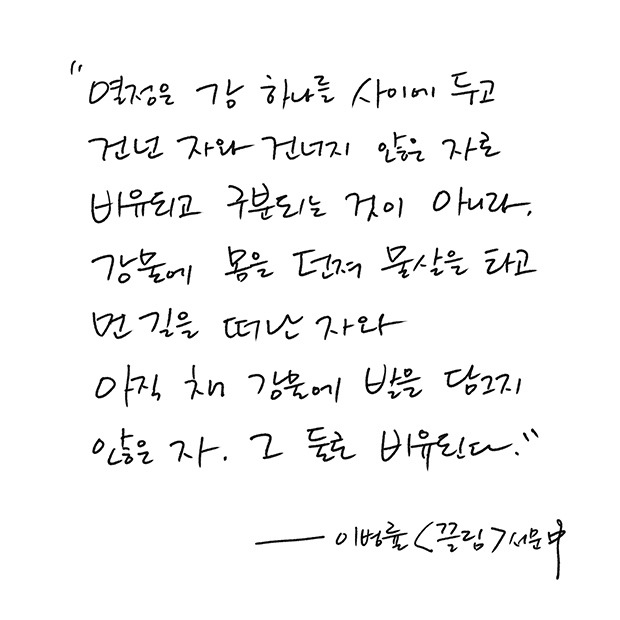 "열정은 강 하나를 사이에 두고
건넌 자와 건너지 않은 자로
비유되고 구분되는 것이 아니라,
강물에 몸을 던져 물살을 타고
먼 길을 떠난 자와
아직 채 강물에 발을 담그지
않은 자. 그 둘로 비유된다."
— 이병률 <끌림> 서문 中